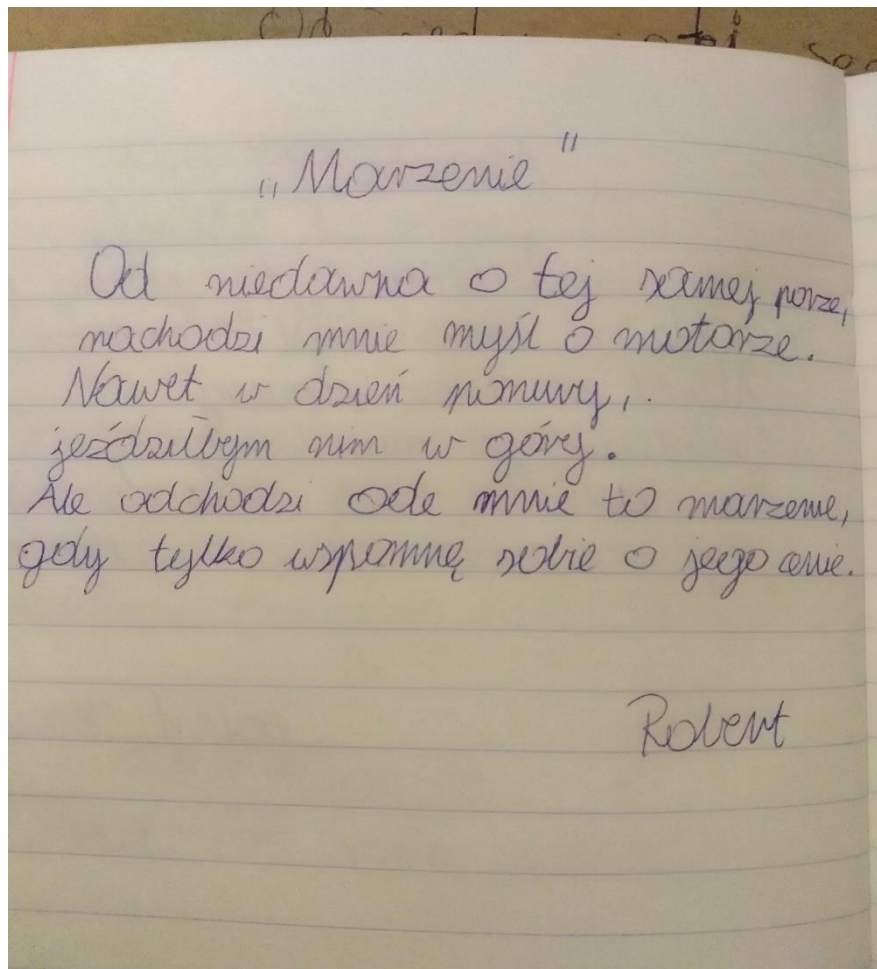 „Marzenie"
Od niedawna o tej samej porze,
nachodzi mnie myśl o motorze.
Nawet w dzień ponury,
jeździłbym nim w góry.
Ale odchodzi ode mnie to marzenie,
gdy tylko wspomnę sobie o jego cenie.
Robert